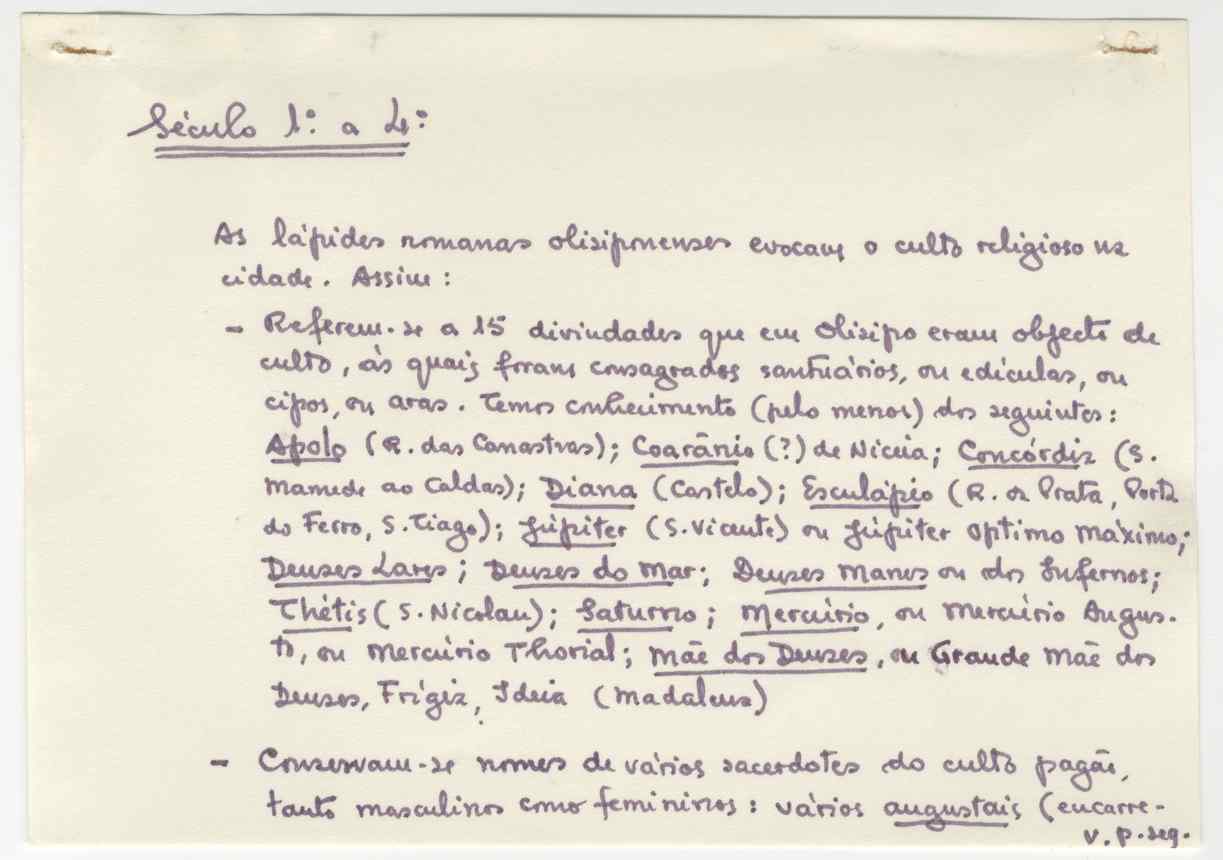 Século 1º. a 4º.
As lápides romanas olisiponenses evocam o culto religioso na
cidade. Assim:
- Referem-se a 15 divindades que em Olisipo eram objecto de
culto, às quais foram consagrados santuários, ou edículas, ou
cipos, ou aras. Temos conhecimento (pelo menos) dos seguintes:
Apolo (R. das Canastras); Coarânio (?) de Niceia; Concórdia (S.
Mamede ao Caldas); Diana (Castelo); Esculápio (R. da Prata, Porta
do Ferro, S. Tiago); Júpiter (S. Vicente) ou Júpiter Optimo Máximo;
Deuses Lares; Deuses do Mar; Deuses Manes ou dos Infernos;
Thétis (S. Nicolau); Saturno; Mercúrio, ou Mercúrio Augus-
to, ou Mercúrio Thorial; Mãe dos Deuses, ou Grande Mãe dos
Deuses, Frígia, Ideia (Madalena)
- Conservam-se nomes de vários sacerdotes do culto pagão,
tanto masculinos como femininos: vários augustais (encarre-
v. p. seg.